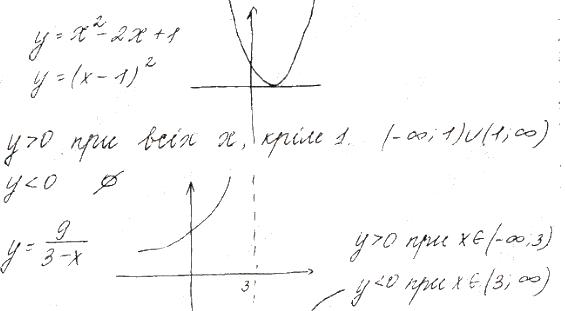 y = x² - 2x + 1
y = (x - 1)²
y>0 при всіх x, крім 1. (-∞; 1)∪(1; ∞)
y<0 ∅
y = 9/(3-x)
3
y>0 при x∈(-∞; 3)
y<0 при x∈(3; ∞)